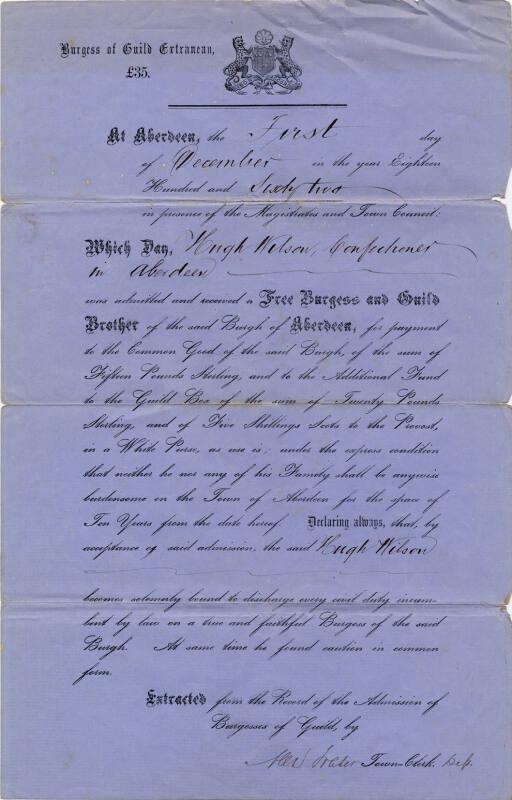 Burgess of Guild Extranean,
£35.
At Aberdeen, the First day
of December in the year Eighteen
Hundred and Sixty two
in presence of the Magistrates and Town Council:
Which Day, Hugh Wilson, Confectioner
in Aberdeen
was admitted and received a Free Burgess and Guild
Brother of the said Burgh of Aberdeen, for payment
to the Common Good of the said Burgh, of the sum of
Fifteen Pounds Sterling, and to the Additional Fund
to the Guild Box of the sum of Twenty Pounds
Sterling, and of Five Shillings Scots to the Provost,
in a White Purse, as use is; under the express condition
that neither he nor any of his Family shall be anywise
burdensome on the Town of Aberdeen for the space of
Ten Years from the date hereof. Declaring always, that, by
acceptance of said admission, the said Hugh Wilson
becomes solemnly bound to discharge every civil duty incum-
bent by law on a true and faithful Burgess of the said
Burgh. At same time he found caution in common
form.
Extracted from the Record of the Admission of
Burgesses of Guild, by
Alexr Fraser Town-Clerk. Dep.